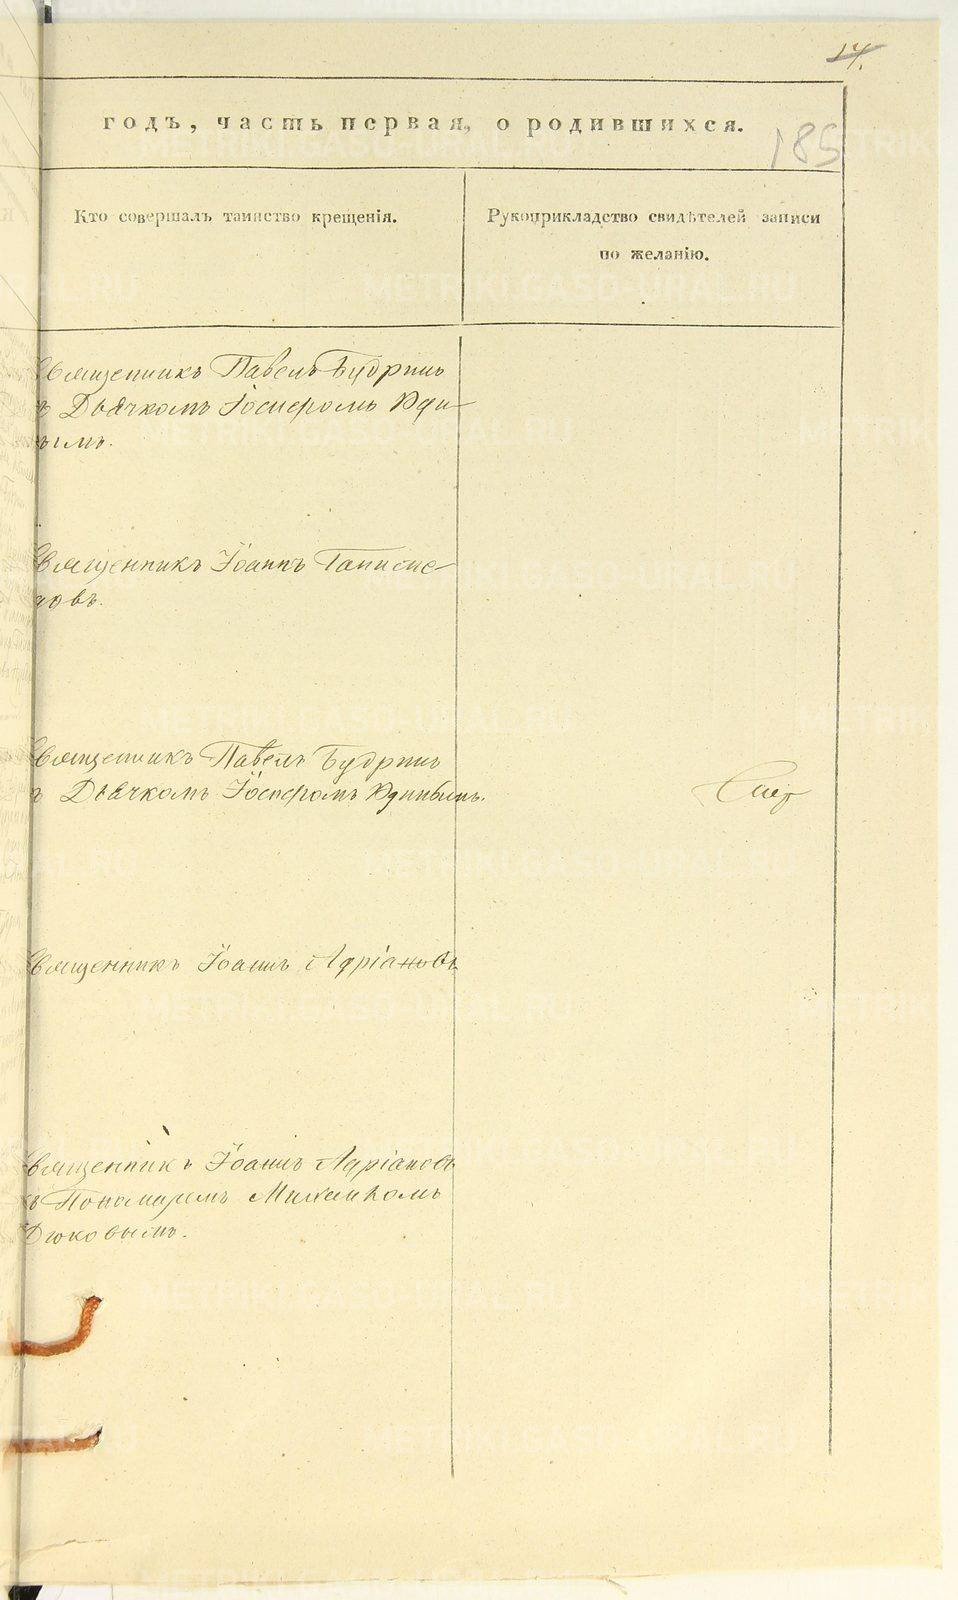 14.
годъ, часть первая, о родившихся.
185
Кто совершалъ таинство крещенія.
Рукоприкладство свидѣтелей записи
по желанію.
Священникъ Павелъ Будринъ
съ Дьячкомъ Іосифомъ Юди-
нымъ.
Священникъ Іоаннъ
Священникъ Павелъ Будринъ
съ Дьячкомъ Іосифомъ Юдинымъ.
Священникъ Іоаннъ Адріановъ
Священникъ Іоаннъ Адріановъ
съ Пономаремъ Михаиломъ
Дюковымъ.
METRIKI.GASO-URAL.RU